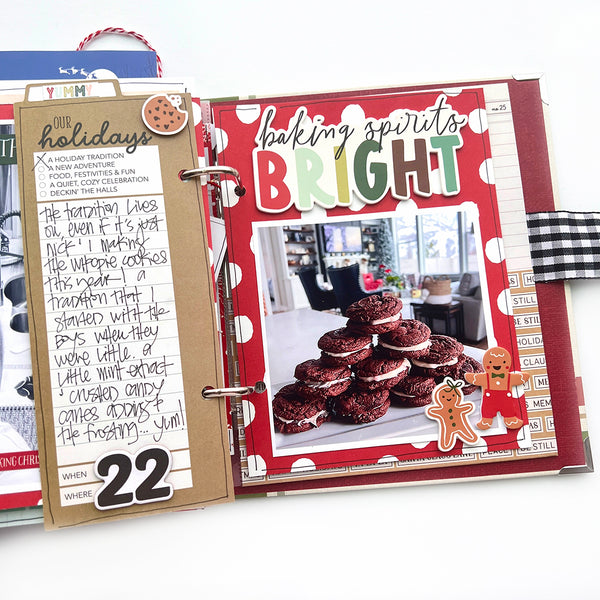 YUMMY
OUR
holidays
X A HOLIDAY TRADITION
A NEW ADVENTURE
FOOD, FESTIVITIES & FUN
A QUIET, COZY CELEBRATION
DECKIN' THE HALLS
the tradition lives
on, even if it's just
nick & I making
the whoopie cookies
this year! a
tradition that I
started with the
boys when they
were little. a
little mint extract
& crusted candy
canes adding to
the frosting... yum!
WHEN
WHERE
22
TH
KING CHRIS
baking spirits
BRIGHT
no 25
AS
HOME
E STILL
BE STILL
HOLIDA
CLAU
MEM
MEMORIES
HO
SANTA CLAUS LANE
PEACE
BE STILL